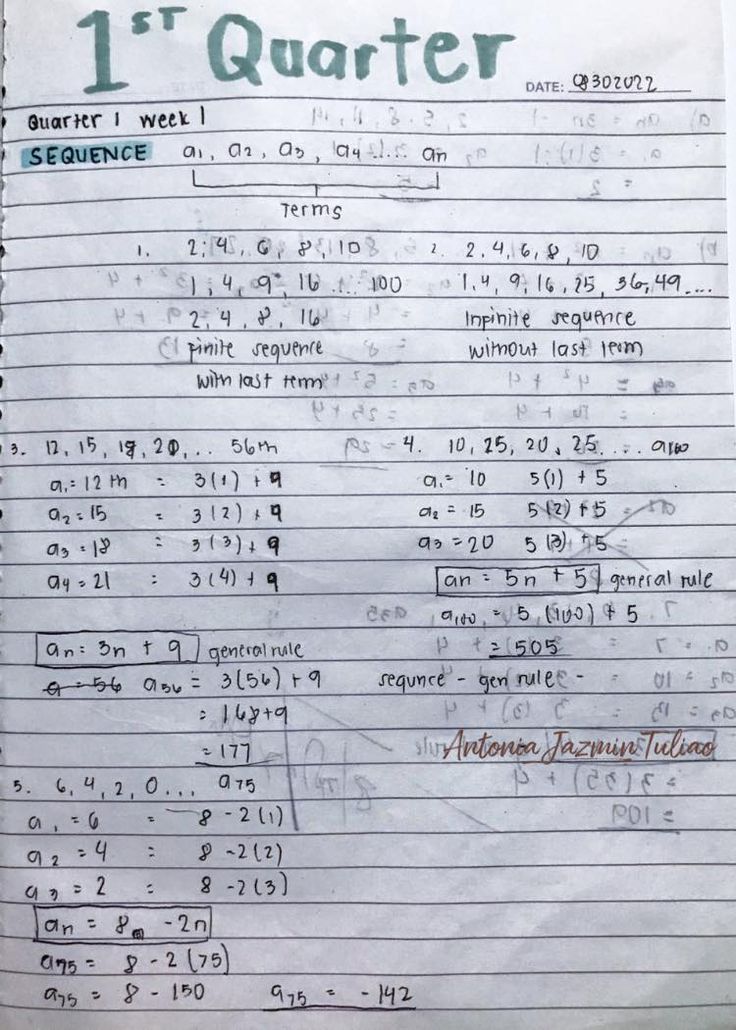 1ST Quarter
DATE: 08302022
Quarter 1 week 1
SEQUENCE a1, a2, a3, a4 ..... an
Terms
1. 2, 4, 6, 8, 10
1, 4, 9, 16 ... 100
2, 4, 8, 16
finite sequence
with last term
2. 2, 4, 6, 8, 10
1, 4, 9, 16, 25, 36, 49 ....
Infinite sequence
without last term
3. 12, 15, 18, 20, .. 56th
a1 = 12 th = 3(1) + 9
a2 = 15 = 3(2) + 9
a3 = 18 = 3(3) + 9
a4 = 21 = 3(4) + 9
an = 3n + 9 general rule
a = 56 a56 = 3(56) + 9
= 168 + 9
= 177
4. 10, 25, 20, 25 .... a100
a1 = 10 5(1) + 5
a2 = 15 5(2) + 5
a3 = 20 5(3) + 5
an = 5n + 5 general rule
a100 = 5 (100) + 5
= 505
sequnce - gen rule -
Antonia Jazmin Tuliao
5. 6, 4, 2, 0 ... a75
a1 = 6 = 8 - 2(1)
a2 = 4 = 8 - 2(2)
a3 = 2 = 8 - 2(3)
an = 8 - 2n
a75 = 8 - 2(75)
a75 = 8 - 150 a75 = -142